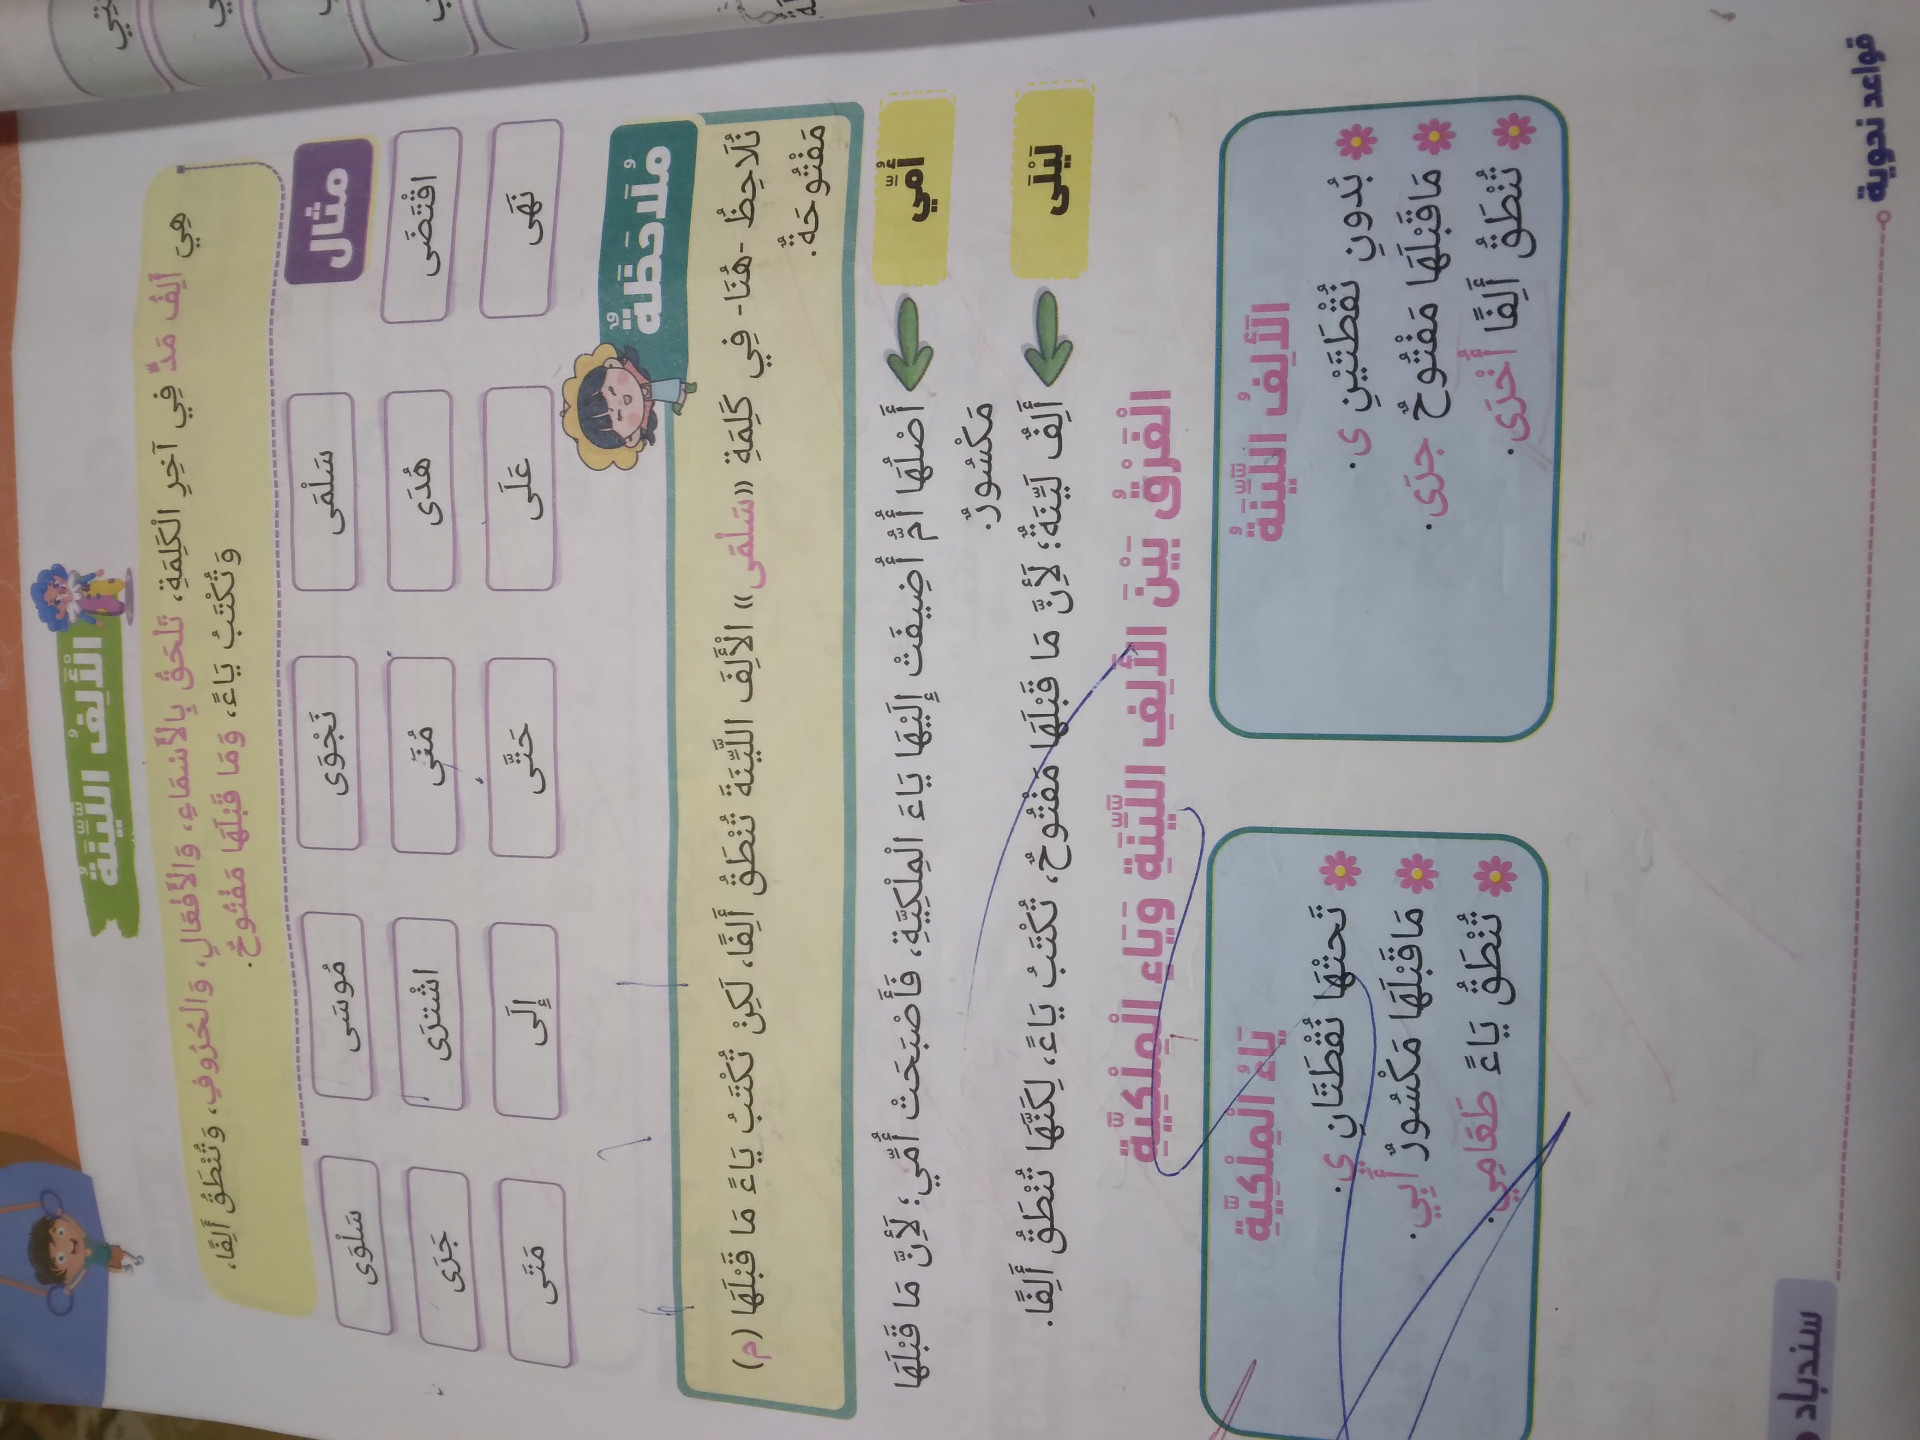 الْأَلِفُ اللَّيِّنَةُ
هِيَ أَلِفُ مَدٍّ فِي آخِرِ الْكَلِمَةِ، تَلْحَقُ بِالْأَسْمَاءِ، وَالْأَفْعَالِ، وَالْحُرُوفِ، وَتُنْطَقُ أَلِفًا،
وَتُكْتَبُ يَاءً، وَمَا قَبْلَهَا مَفْتُوحٌ.
مثال
سَلْمَى
نَجْوَى
مُوسَى
سَلْوَى
اقْتَضَى
هُدَى
مُنَى
اشْتَرَى
جَرَى
نَهَى
عَلَى
حَتَّى
إِلَى
مَتَى
مُلَاحَظَةٌ
نُلَاحِظُ -هُنَا- فِي كَلِمَةِ «سَلْمَى» الْأَلِفَ اللَّيِّنَةَ تُنْطَقُ أَلِفًا، لَكِنْ تُكْتَبُ يَاءً مَا قَبْلَهَا (م)
مَفْتُوحَةٌ.
أُمِّي
أَصْلُهَا أُمٌّ أُضِيفَتْ إِلَيْهَا يَاءَ الْمِلْكِيَّةِ، فَأَصْبَحَتْ أُمِّي؛ لَأِنَّ مَا قَبْلَهَا
مَكْسُورٌ.
لَيْلَى
أَلِفٌ لَيِّنَةٌ؛ لَأِنَّ مَا قَبْلَهَا مَفْتُوحٌ، تُكْتَبُ يَاءً، لِكَنَّهَا تُنْطَقُ أَلِفًا.
الْفَرْقُ بَيْنَ الْأَلِفِ اللَّيِّنَةِ وَيَاءِ الْمِلْكِيَّةِ
الْأَلِفُ اللَّيِّنَةُ
بُدُونِ نُقْطَتَيْنِ ى.
مَاقَبْلَهَا مَفْتُوحٌ جَرَى.
تُنْطَقُ أَلِفًا أُخْرَى.
يَاءُ الْمِلْكِيَّةِ
تَحْتَهَا نُقْطَتَانِ ي.
مَاقَبْلَهَا مَكْسُورٌ أَبِي.
تُنْطَقُ يَاءً طَعَامِي.
قواعد نحوية
سندباد